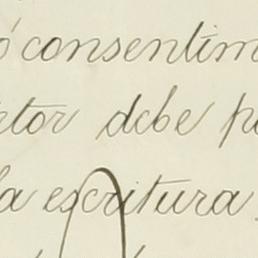 ó consentim
ctor debe p
la escritura